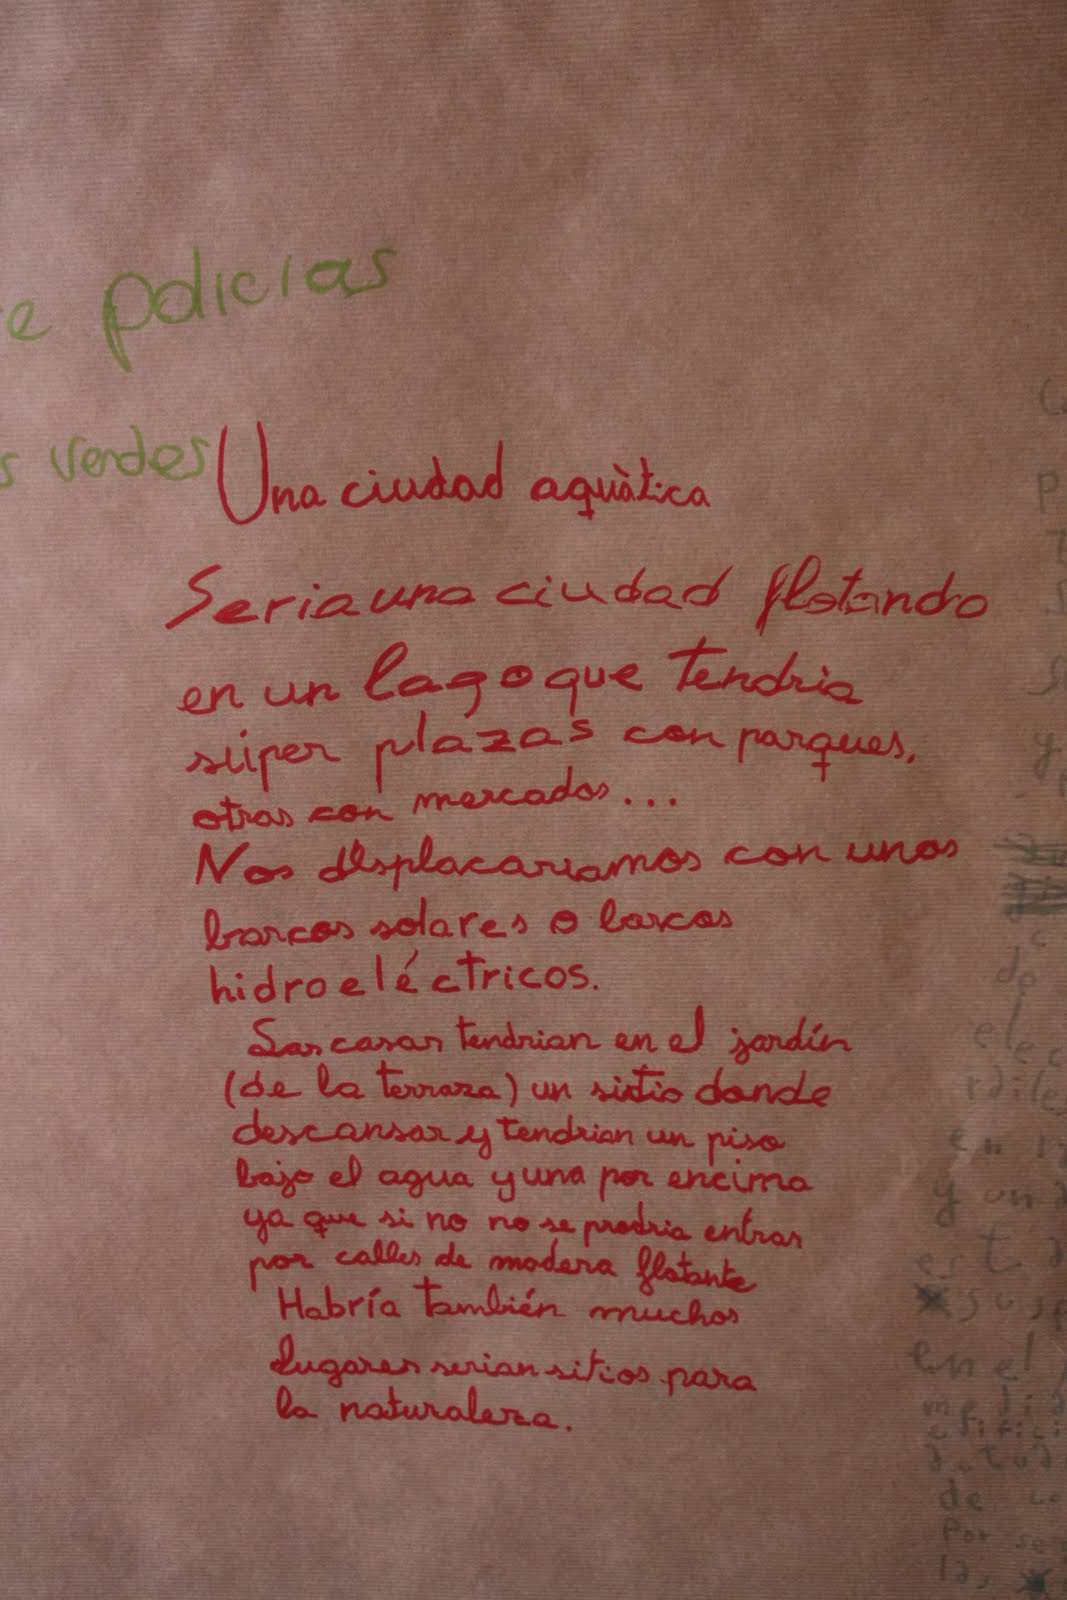 e policias
s verdes
Una ciudad aquàtica
Seria una ciudad flotando
en un lago que tendria
súper plazas con parques,
otras con mercados...
Nos displacariamos con unos
barcos solares o barcos
hidroeléctricos.
Las casas tendrian en el jardín
(de la terraza) un sistio donde
descansar y tendrian un piso
bajo el agua y una por encima
ya que si no no se prodria entrar
por calles de madera flotante
Habría también muchos
lugares serian sitios para
la naturaleza.
do
elec
en
y un
est
susp
en el
de
Por se